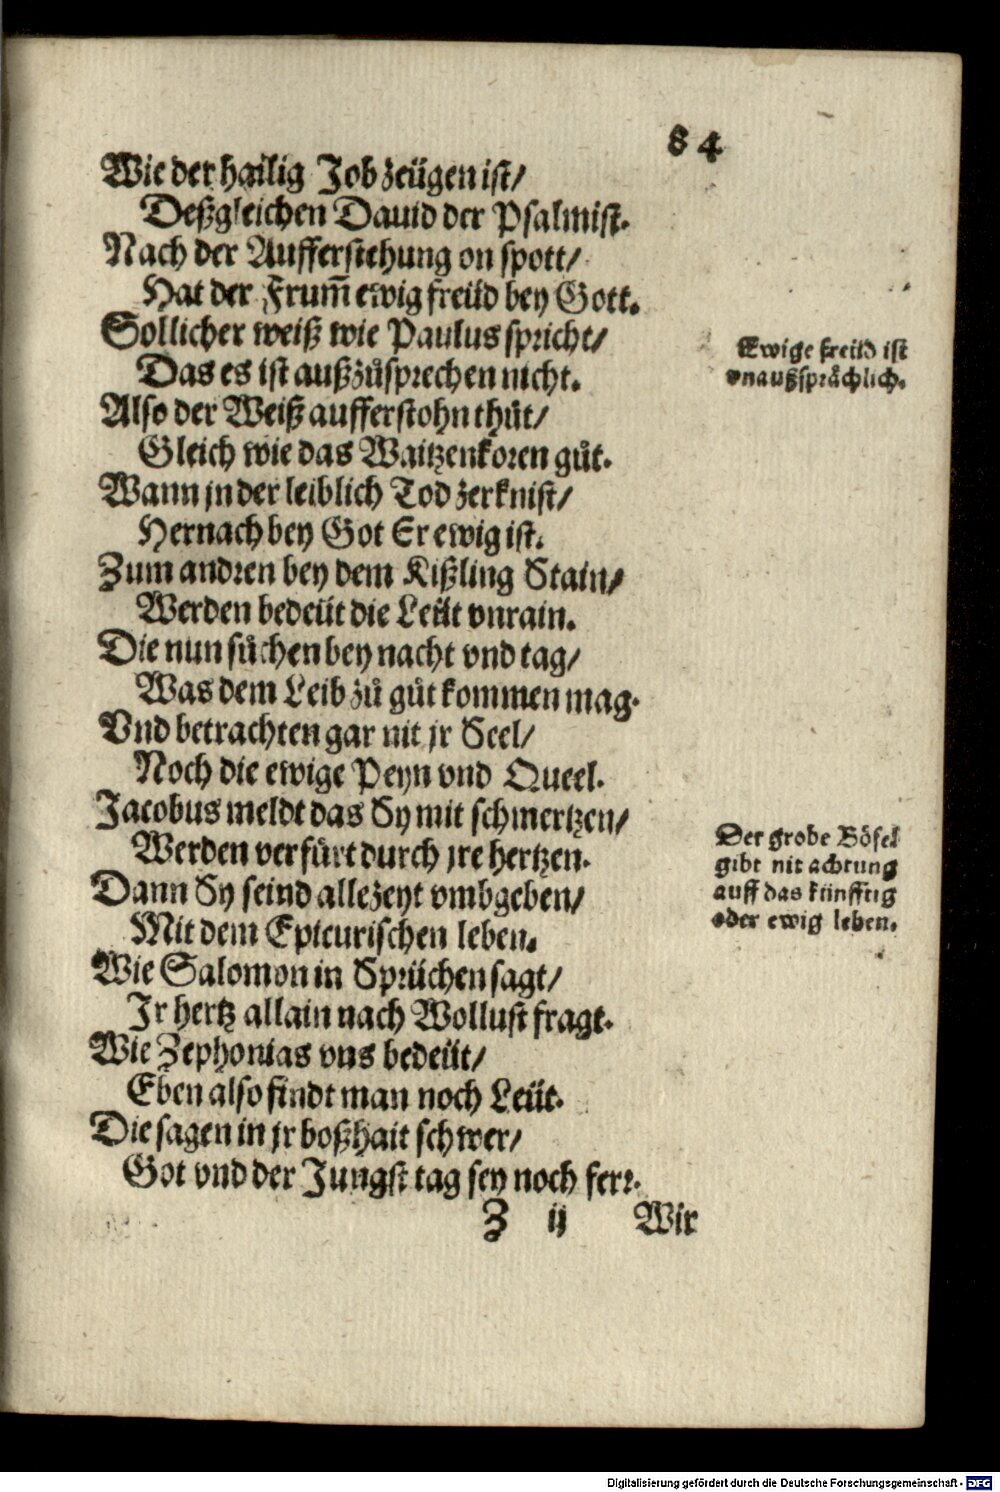 84
Wie der hailig Job zeügen ist/
Deßgleichen Dauid der Psalmist.
Nach der Aufferstehung on spott/
Hat der Frum̃ ewig freüd bey Gott.
Sollicher weiß wie Paulus spricht/
Das es ist außzůsprechen nicht.
Ewige freüd ist
vnaußsprächlich.
Also der Weiß aufferstohn thůt/
Gleich wie das Waitzenkoren gůt.
Wann jn der leiblich Tod zerknist/
Hernach bey Got Er ewig ist.
Zum andren bey dem Kißling Stain/
Werden bedeüt die Leüt vnrain.
Die nun sůchen bey nacht vnd tag/
Was dem Leib zů gůt kommen mag.
Vnd betrachten gar nit jr Seel/
Noch die ewige Peyn vnd Queel.
Jacobus meldt das Sy mit schmertzen/
Werden verfürt durch jre hertzen.
Dann Sy seind allezeyt vmbgeben/
Mit dem Epicurischen leben.
Der grobe Bösel
gibt nit achtung
auff das künfftig
oder ewig leben.
Wie Salomon in Sprüchen sagt/
Jr hertz allain nach Wollust fragt.
Wie Zephonias vns bedeüt/
Eben also findt man noch Leüt.
Die sagen in jr boßhait schwer/
Got vnd der Jungst tag sey noch ferr.
Z ij Wir
Digitalisierung gefördert durch die Deutsche Forschungsgemeinschaft - DFG